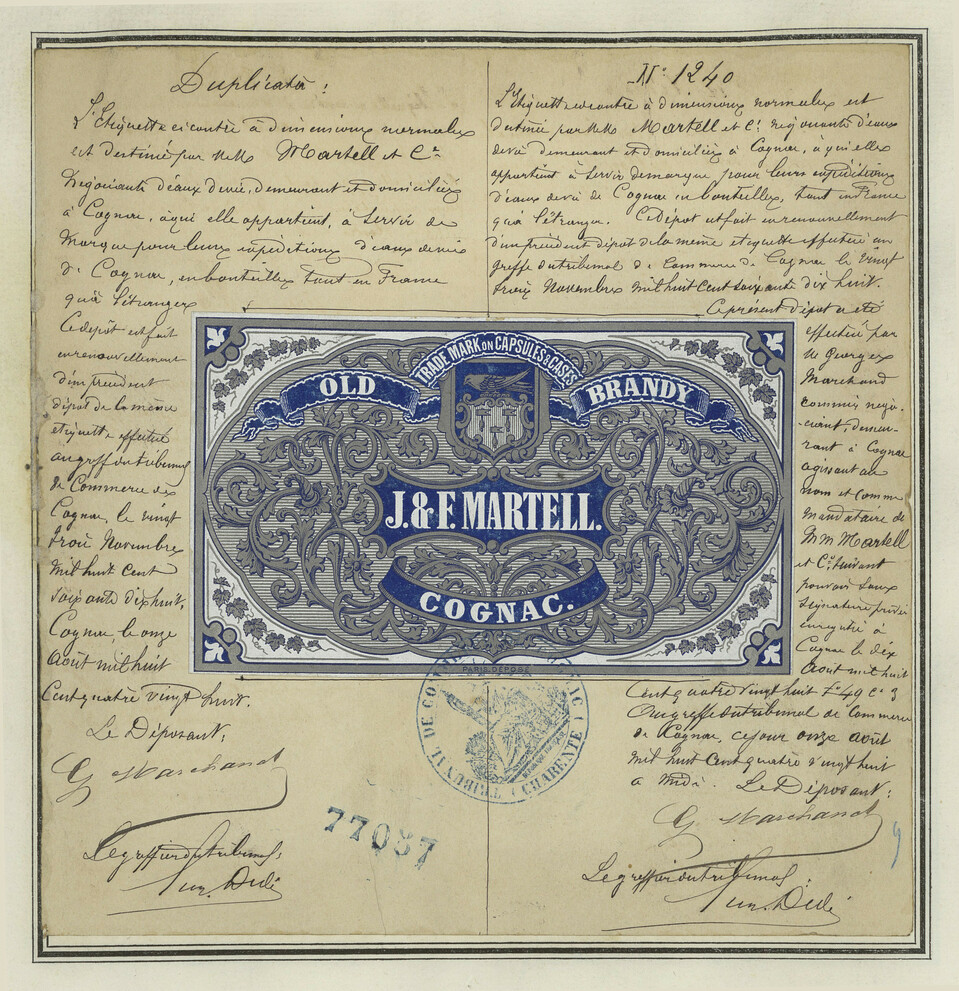 Duplicata :
L'Etiquette ci contre à dimensions normales
est destinée par MM. Martell et Cie
Négociants d'eaux de vie, demeurant et domiciliés
à Cognac, à qui elle appartient, à servir de
Marque pour leurs expéditions d'eaux de vie
de Cognac, en bouteilles tant en France
qu'à l'étranger
Ce dépôt est fait
en renouvellement
d'un précédent
dépôt de la même
etiquette effectué
au greffe du tribunal
de Commerce de
Cognac, le vingt
trois Novembre
mil huit cent
soixante dix huit.
Cognac le onze
Août mil huit
Cent quatre vingt huit.
Le Déposant,
G Marchand
Le greffier du tribunal:
N° 1240
L'Etiquette ci contre à dimensions normales est
destinée par MM. Martell et Cie négociants d'eaux
de vie demeurant et domiciliés à Cognac, à qui elle
appartient à servir de marque pour leurs expéditions
d'eaux de vie de Cognac en bouteilles, tant en France
qu'à l'étranger. Ce dépôt est fait en renouvellement
d'un précédent dépôt de la même etiquette effectué au
greffe du tribunal de Commerce de Cognac le vingt
trois Novembre mil huit cent soixante dix huit.
Ce présent dépôt a été
effectué par
M Georges
Marchand
commis négo-
ciant, demeu-
rant à Cognac
agissant au
nom et comme
mandataire de
MM Martell
et Cie suivant
pouvoir sous
signature privée
enregistré à
Cognac le dix
Août mil huit
Cent quatre vingt huit Fo 49 Co 3
Au greffe du tribunal de Commerce
de Cognac, ce jour onze août
mil huit cent quatre vingt huit
à midi. Le Déposant:
G Marchand
Le greffier du tribunal:
TRADE MARK ON CAPSULES & CASES
OLD BRANDY
J. & F. MARTELL.
COGNAC.
PARIS. DÉPOSÉ
TRIBUNAL DE COMMERCE
CHARENTE
77037